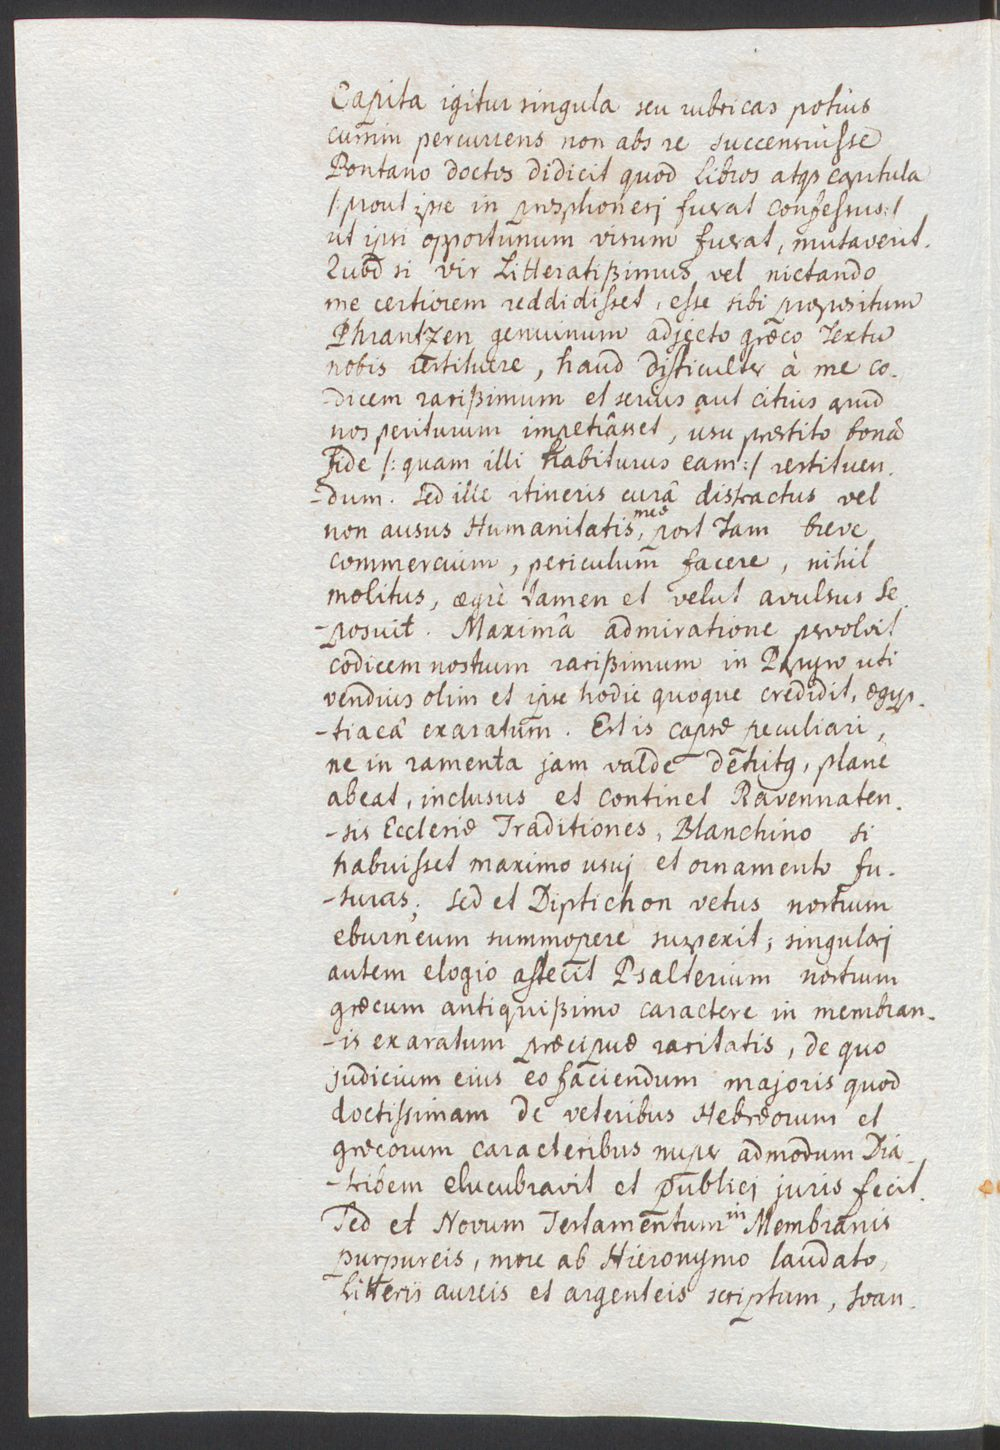 Capita igitur singula seu rubricas potius
cursim percurrens non abs re succensuisse
Pontano doctos didicit quod libros atqꝫ capitula
/: prout ipse in prosphonesj fuerat confessus :/
ut ipsi opportunum visum fuerat, mutaverit.
Quod si vir Litteratißimus vel nictando
me certiorem reddidisset, esse sibi propositum
Phrantzen genuinum adjecto græco Textu
nobis restituere, haud difficulter à me co-
-dicem rarißimum et serius aut citius apud
nos periturum impetrâsset, usu præstito bonâ
fide /: quam illi habiturus eam :/ restituen-
-dum. Sed ille itineris curâ distractus vel
non ausus Humanitatis meæ, post Tam breve
commercium, periculum facere, nihil
molitus, ægrè tamen et velut avulsus de-
-posuit. Maximâ admiratione pervolvit
codicem nostrum rarißimum in Papyro uti
vendius olim et ipse hodie quoque credidit, ægyp-
-tiacâ exaratum. Est is capsæ peculiari,
ne in ramenta jam valde detritꝫ, plane
abeat, inclusus et continet Ravennaten-
-sis Ecclesiæ Traditiones, Blanchino si
habuisset maximo usuj et ornamento fu-
-turas; sed et Diptichon vetus nostrum
eburneum summopere suspexit; singularj
autem elogio affecit Psalterium nostrum
græcum antiquißimo caractere in membran-
-is exaratum præcipuæ raritatis, de quo
judicium eius eo faciendum majoris quod
doctissimam de veteribus Hebræorum et
græcorum caracteribus nuper admodum Dia-
-tribem elucubravit et publicj juris fecit.
Sed et Novum Testamentum in Membranis
purpureis, more ab Hieronymo laudato,
Litteris aureis et argenteis scriptum, Evan-